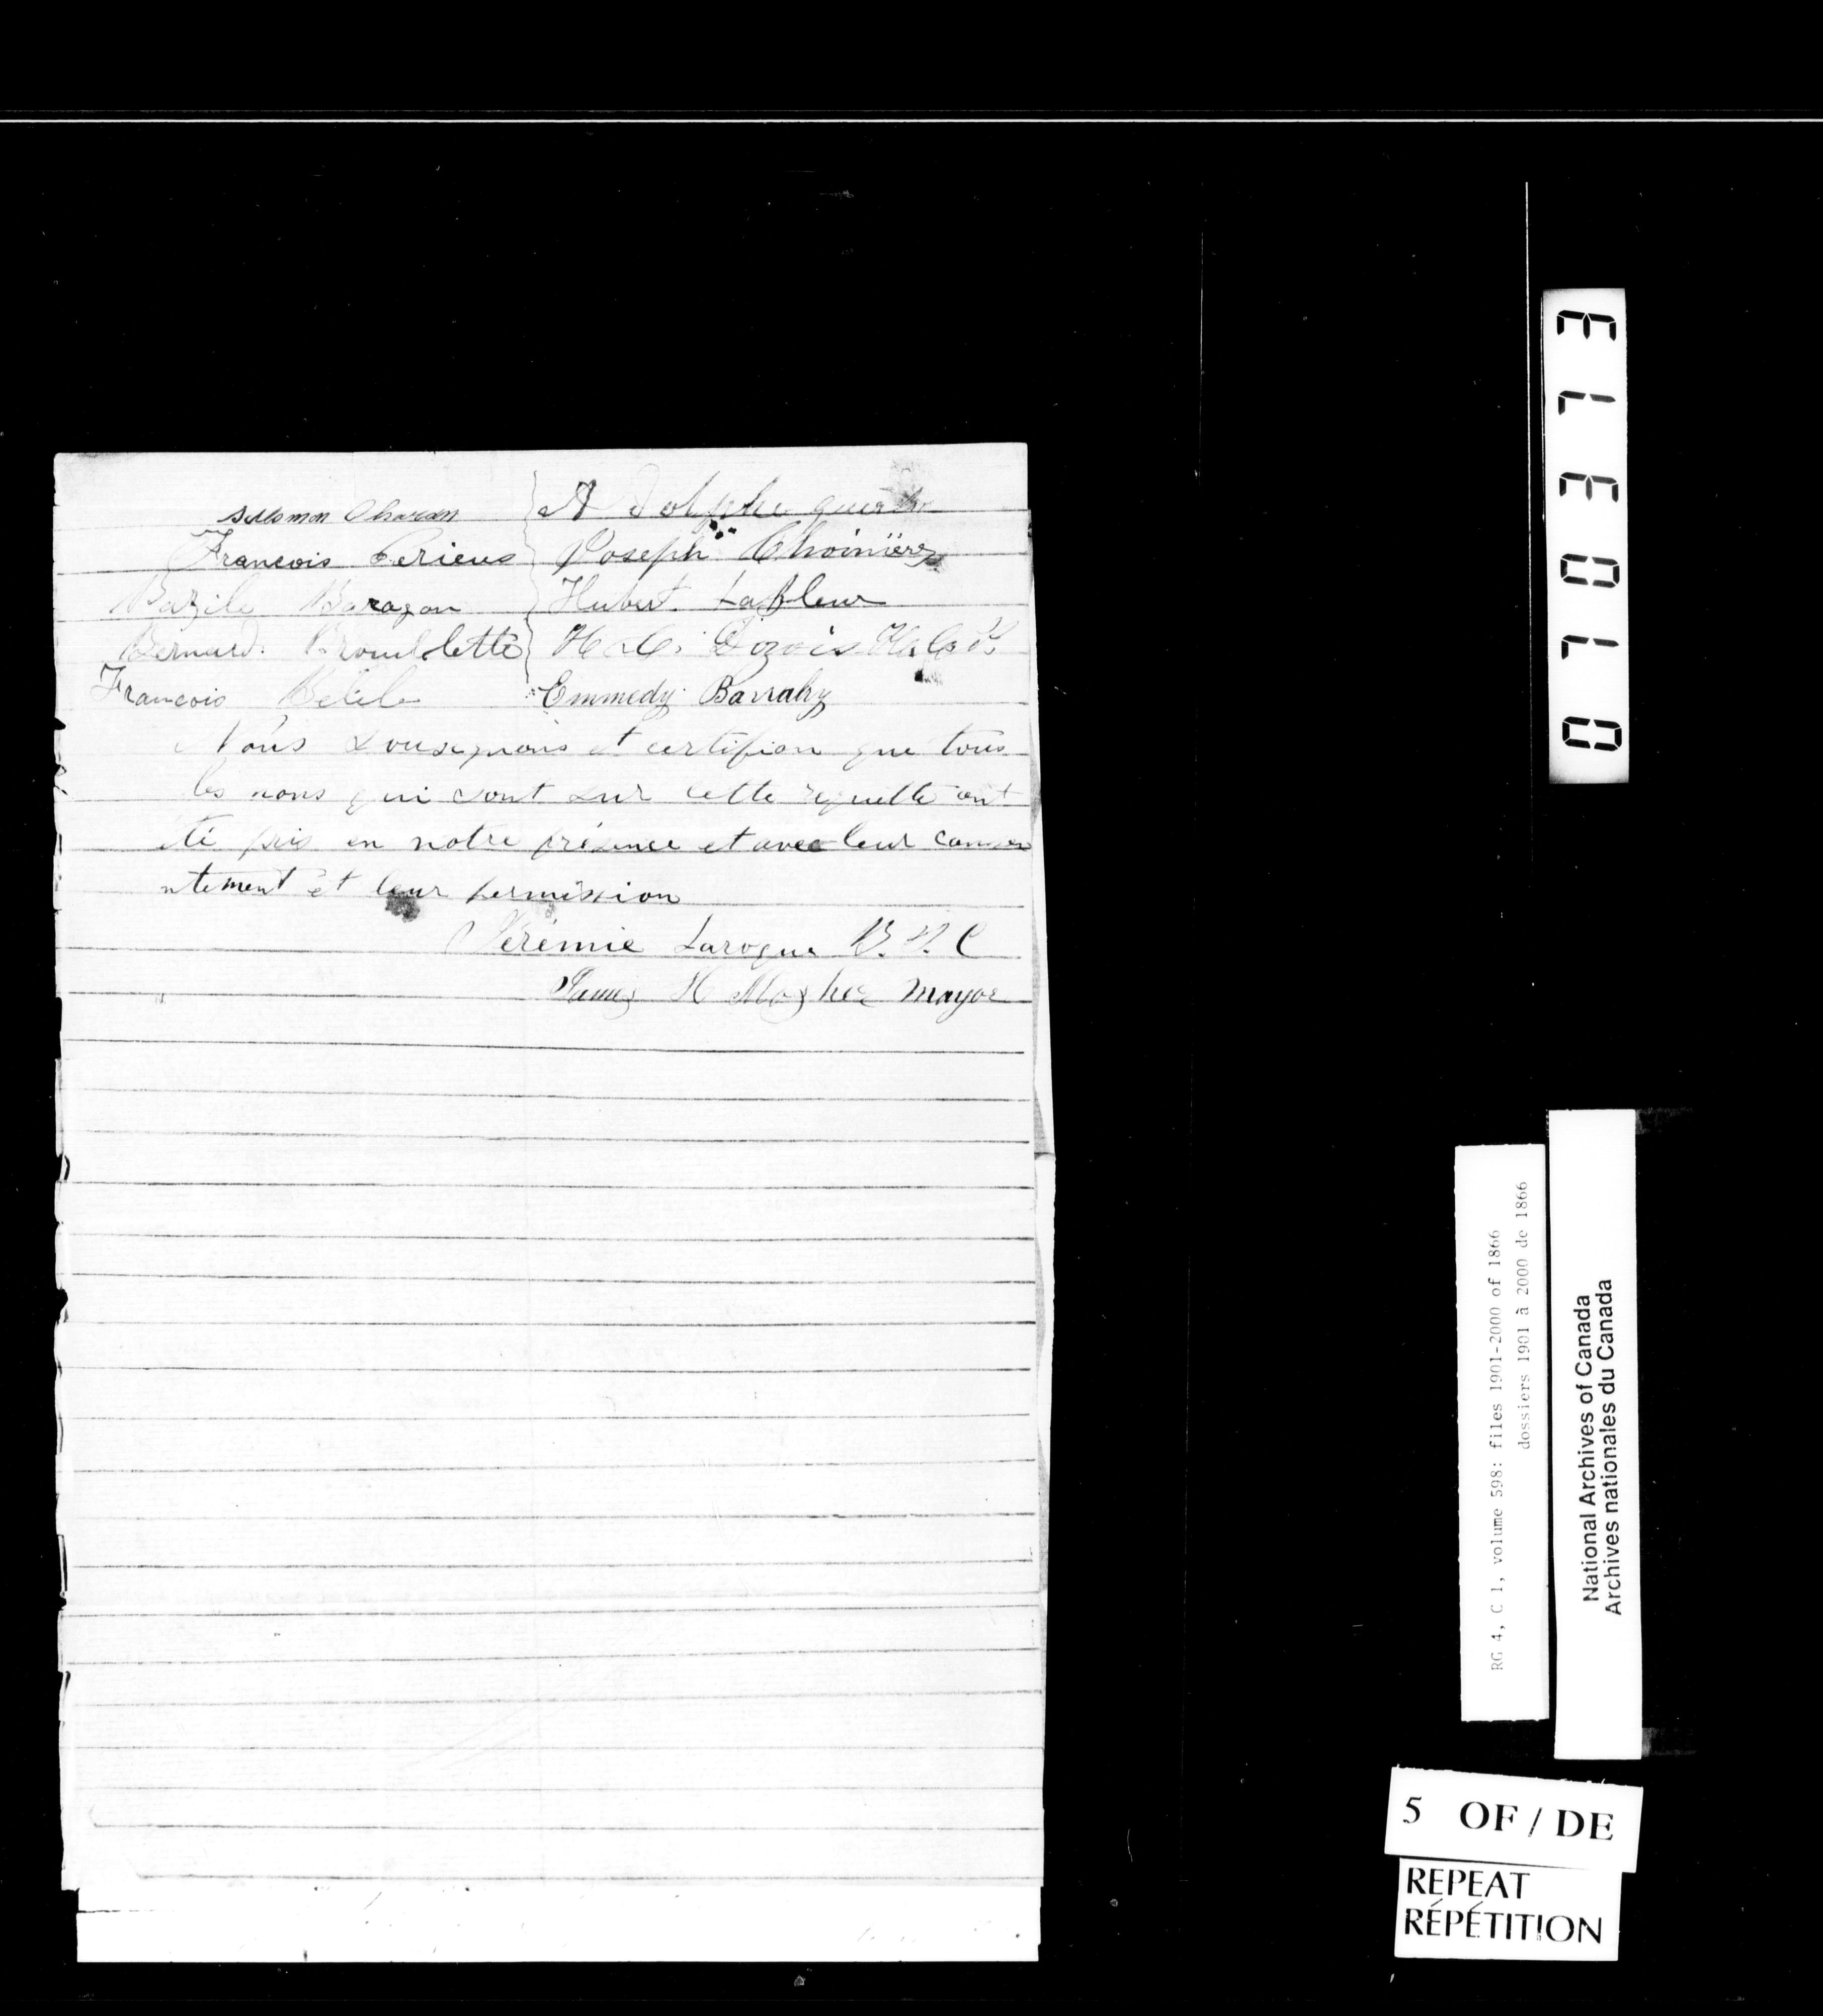 Solomon Charon } A Dolphe guer
Francois Perieus } Joseph Choinière
Bazile Barazon } Hubert Lafleur
Bernard Broullette } H Dozois
Francois Belile Emmedy Barraby
Nous Sousignons et certifion que tous
les nons qui sont sur cette requette ont
été pris en notre présence et avec leur consen
ntement et leur permission
Jérémie Laroque
James H Mosher Mayor
013013
RG 4, C 1, volume 598: files 1901-2000 of 1866
dossiers 1901 à 2000 de 1866
National Archives of Canada
Archives nationales du Canada
5 OF / DE
REPEAT
RÉPÉTITION